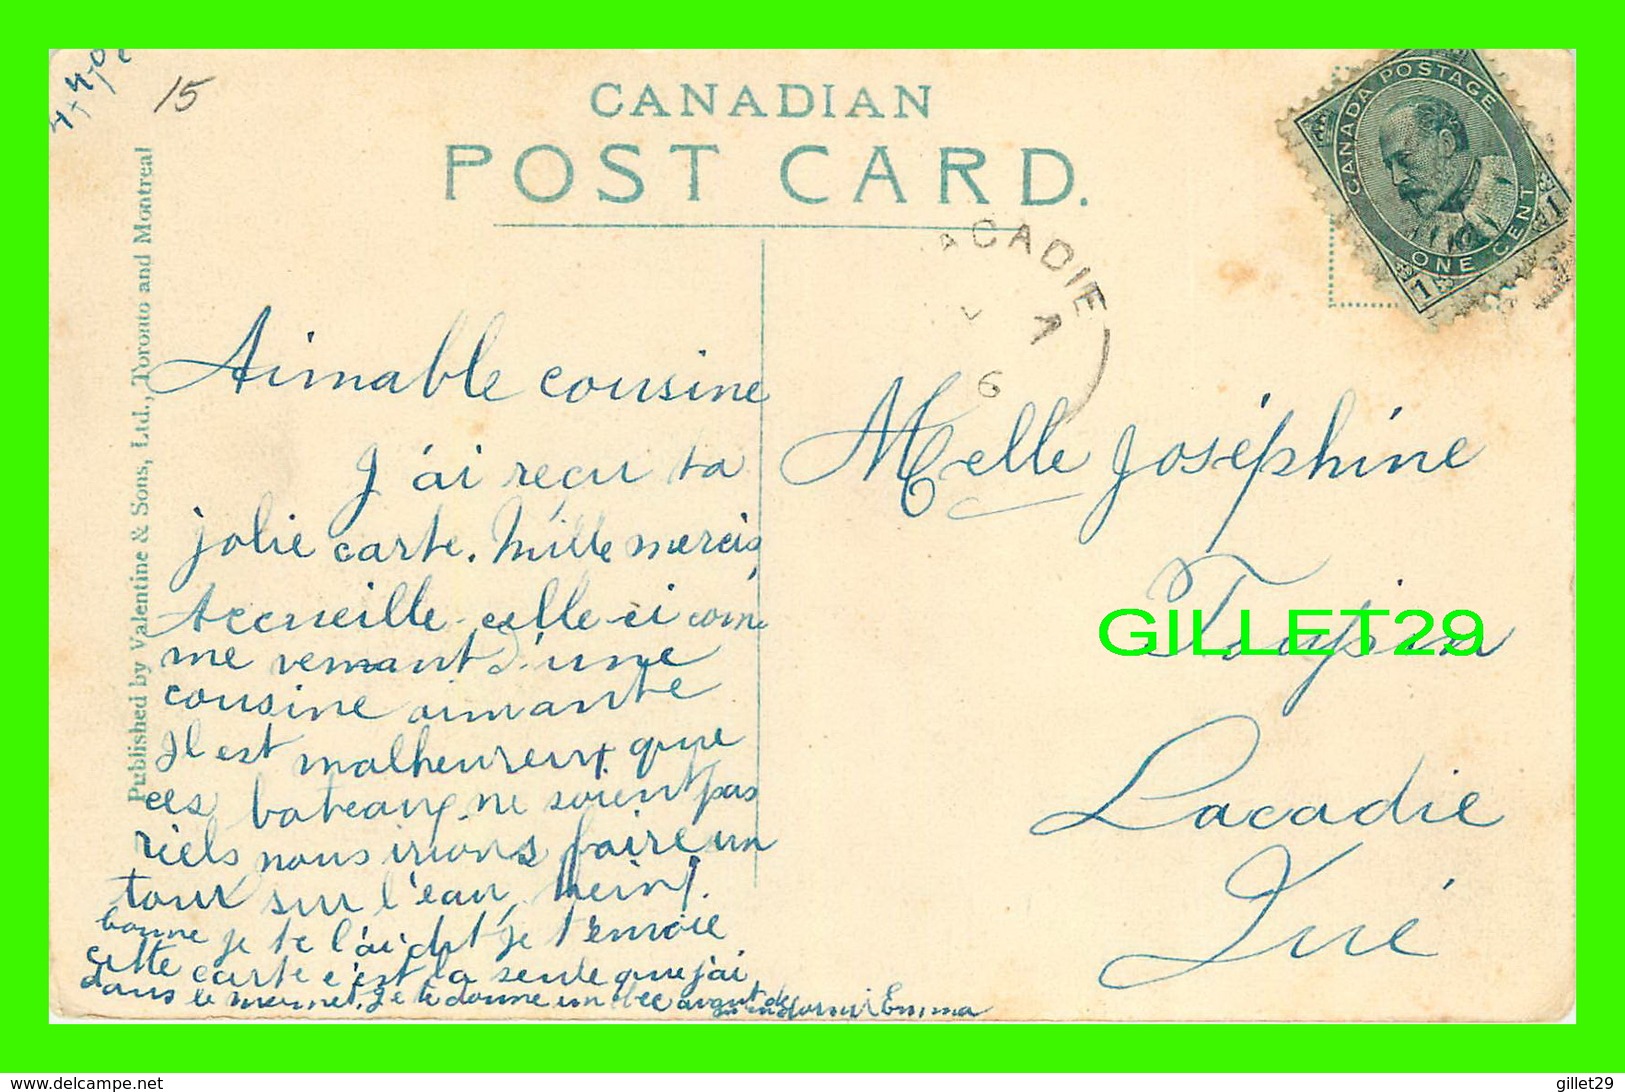 15
CANADIAN
POST CARD.
Published by Valentine & Sons, Ltd., Toronto and Montreal
CANADA POSTAGE
ONE CENT
1 1
ACADIE
6
Aimable cousine
J'ai reçu ta
jolie carte. Mille mercis,
Accueille celle-ci com
me venant d'une
cousine aimante
Il est malheureux que
ces bateaux ne soient pas
riels nous irions faire un
tour sur l'eau, hein!.
bonne je te l'ai dit je t'envoie
cette carte c'est la seule que j'ai
dans le moment. Je te donne un bec avant de
m'endormir Emma
Melle Joséphine
Toupin
Lacadie
Qué
GILLET29
delcampe.net
gillet29